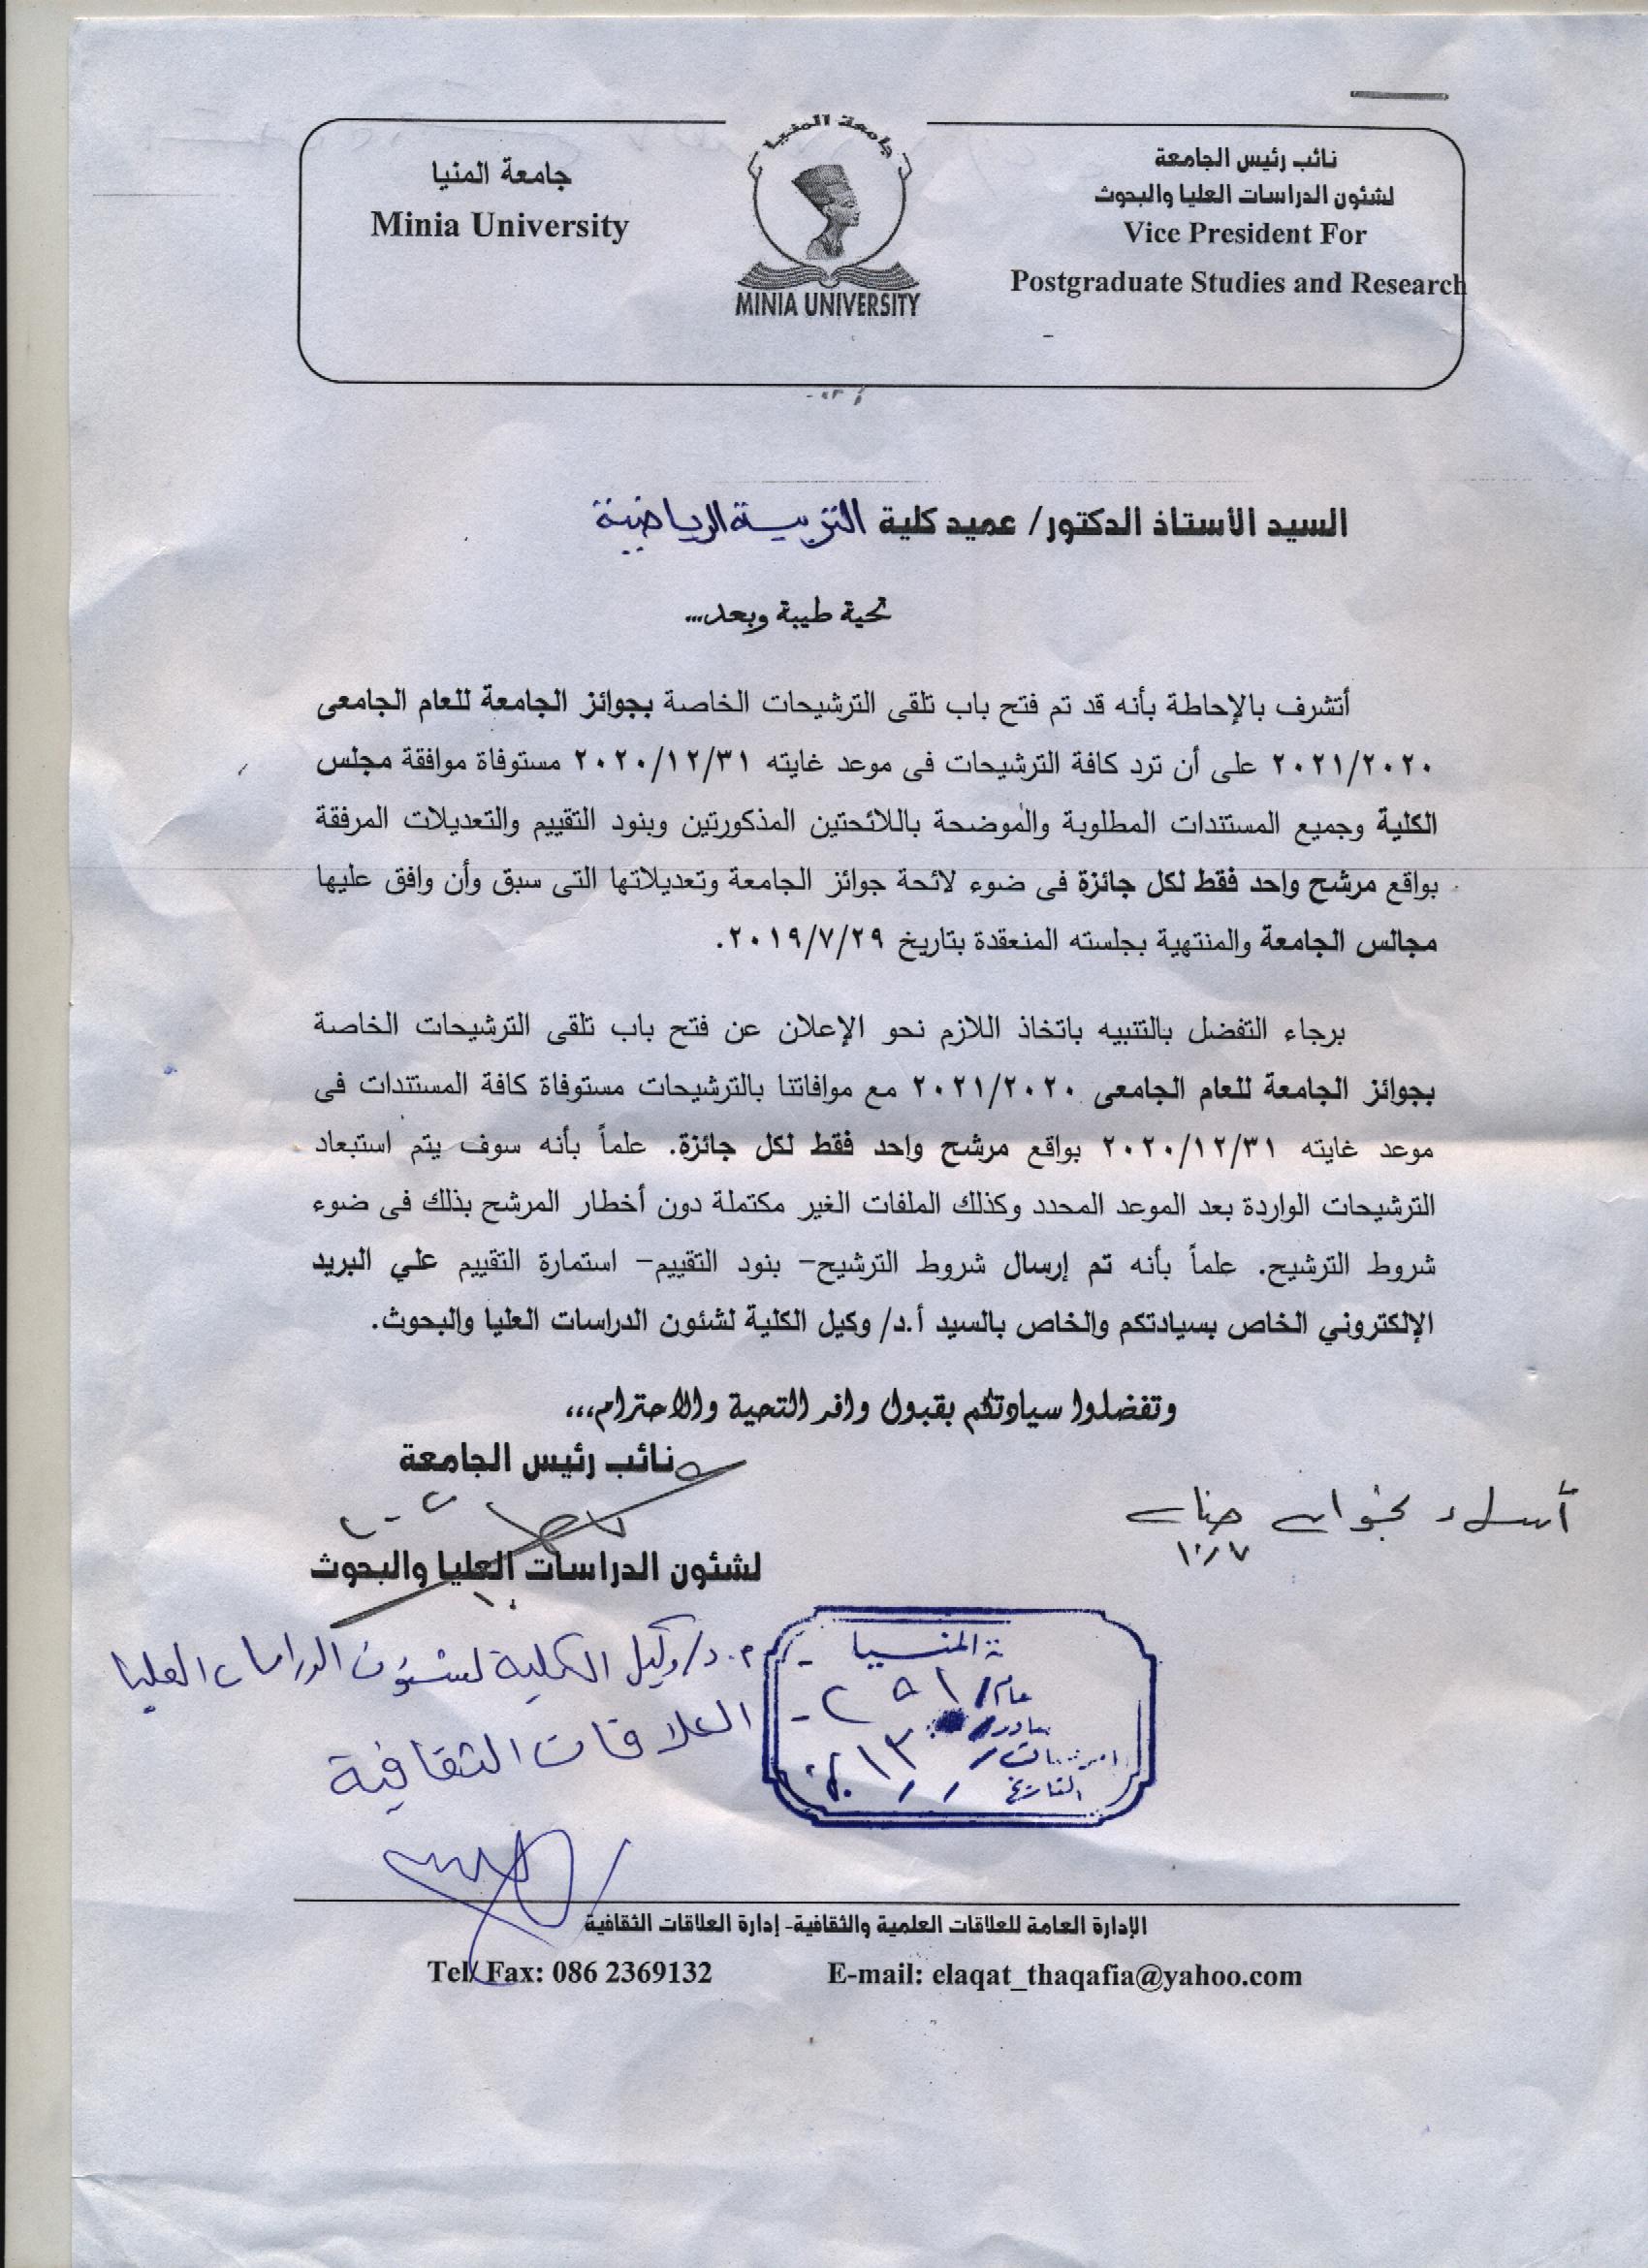 نائب رئيس الجامعة
لشئون الدراسات العليا والبحوث
Vice President For
Postgraduate Studies and Research
جامعة المنيا
MINIA UNIVERSITY
جامعة المنيا
Minia University
السيد الأستاذ الدكتور/ عميد كلية التربية الرياضية
تحية طيبة وبعد...
أتشرف بالإحاطة بأنه قد تم فتح باب تلقى الترشيحات الخاصة بجوائز الجامعة للعام الجامعى
٢٠٢١/٢٠٢٠ على أن ترد كافة الترشيحات فى موعد غايته ٢٠٢٠/١٢/٣١ مستوفاة موافقة مجلس
الكلية وجميع المستندات المطلوبة والموضحة باللائحتين المذكورتين وبنود التقييم والتعديلات المرفقة
بواقع مرشح واحد فقط لكل جائزة فى ضوء لائحة جوائز الجامعة وتعديلاتها التى سبق وأن وافق عليها
مجالس الجامعة والمنتهية بجلسته المنعقدة بتاريخ ٢٠١٩/٧/٢٩.
برجاء التفضل بالتنبيه باتخاذ اللازم نحو الإعلان عن فتح باب تلقى الترشيحات الخاصة
بجوائز الجامعة للعام الجامعى ٢٠٢١/٢٠٢٠ مع موافاتنا بالترشيحات مستوفاة كافة المستندات فى
موعد غايته ٢٠٢٠/١٢/٣١ بواقع مرشح واحد فقط لكل جائزة. علماً بأنه سوف يتم استبعاد
الترشيحات الواردة بعد الموعد المحدد وكذلك الملفات الغير مكتملة دون أخطار المرشح بذلك فى ضوء
شروط الترشيح. علماً بأنه تم إرسال شروط الترشيح- بنود التقييم- استمارة التقييم علي البريد
الإلكتروني الخاص بسيادتكم والخاص بالسيد أ.د/ وكيل الكلية لشئون الدراسات العليا والبحوث.
وتفضلوا سيادتكم بقبول وافر التحية والاحترام,,,
نائب رئيس الجامعة
لشئون الدراسات العليا والبحوث
المنيا
عام/
صادر/
التاريخ
د/ وكيل الكلية لشئون الدراسات العليا
العلاقات الثقافية
الإدارة العامة للعلاقات العلمية والثقافية- إدارة العلاقات الثقافية
Tel/ Fax: 086 2369132 E-mail: elaqat_thaqafia@yahoo.com